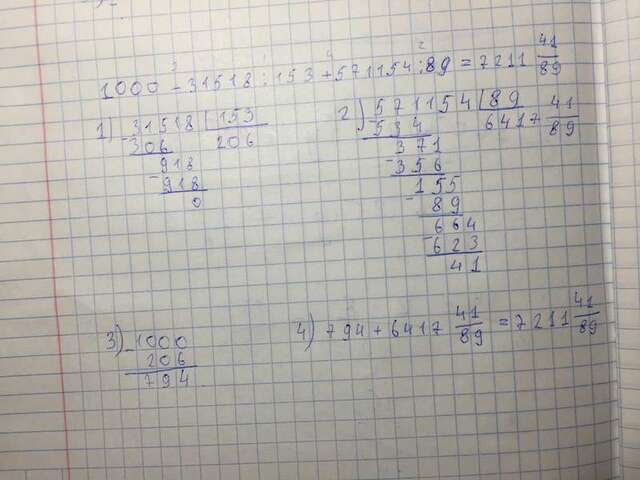 3 1 4 2
1000 - 31518 : 153 + 571154 : 89 = 7211 41/89
1) 31518 | 153
- 306 206
918
- 918
0
2) 571154 | 89
- 534 6417 41/89
371
- 356
155
- 89
664
- 623
41
3) - 1000
206
794
4) 794 + 6417 41/89 = 7211 41/89